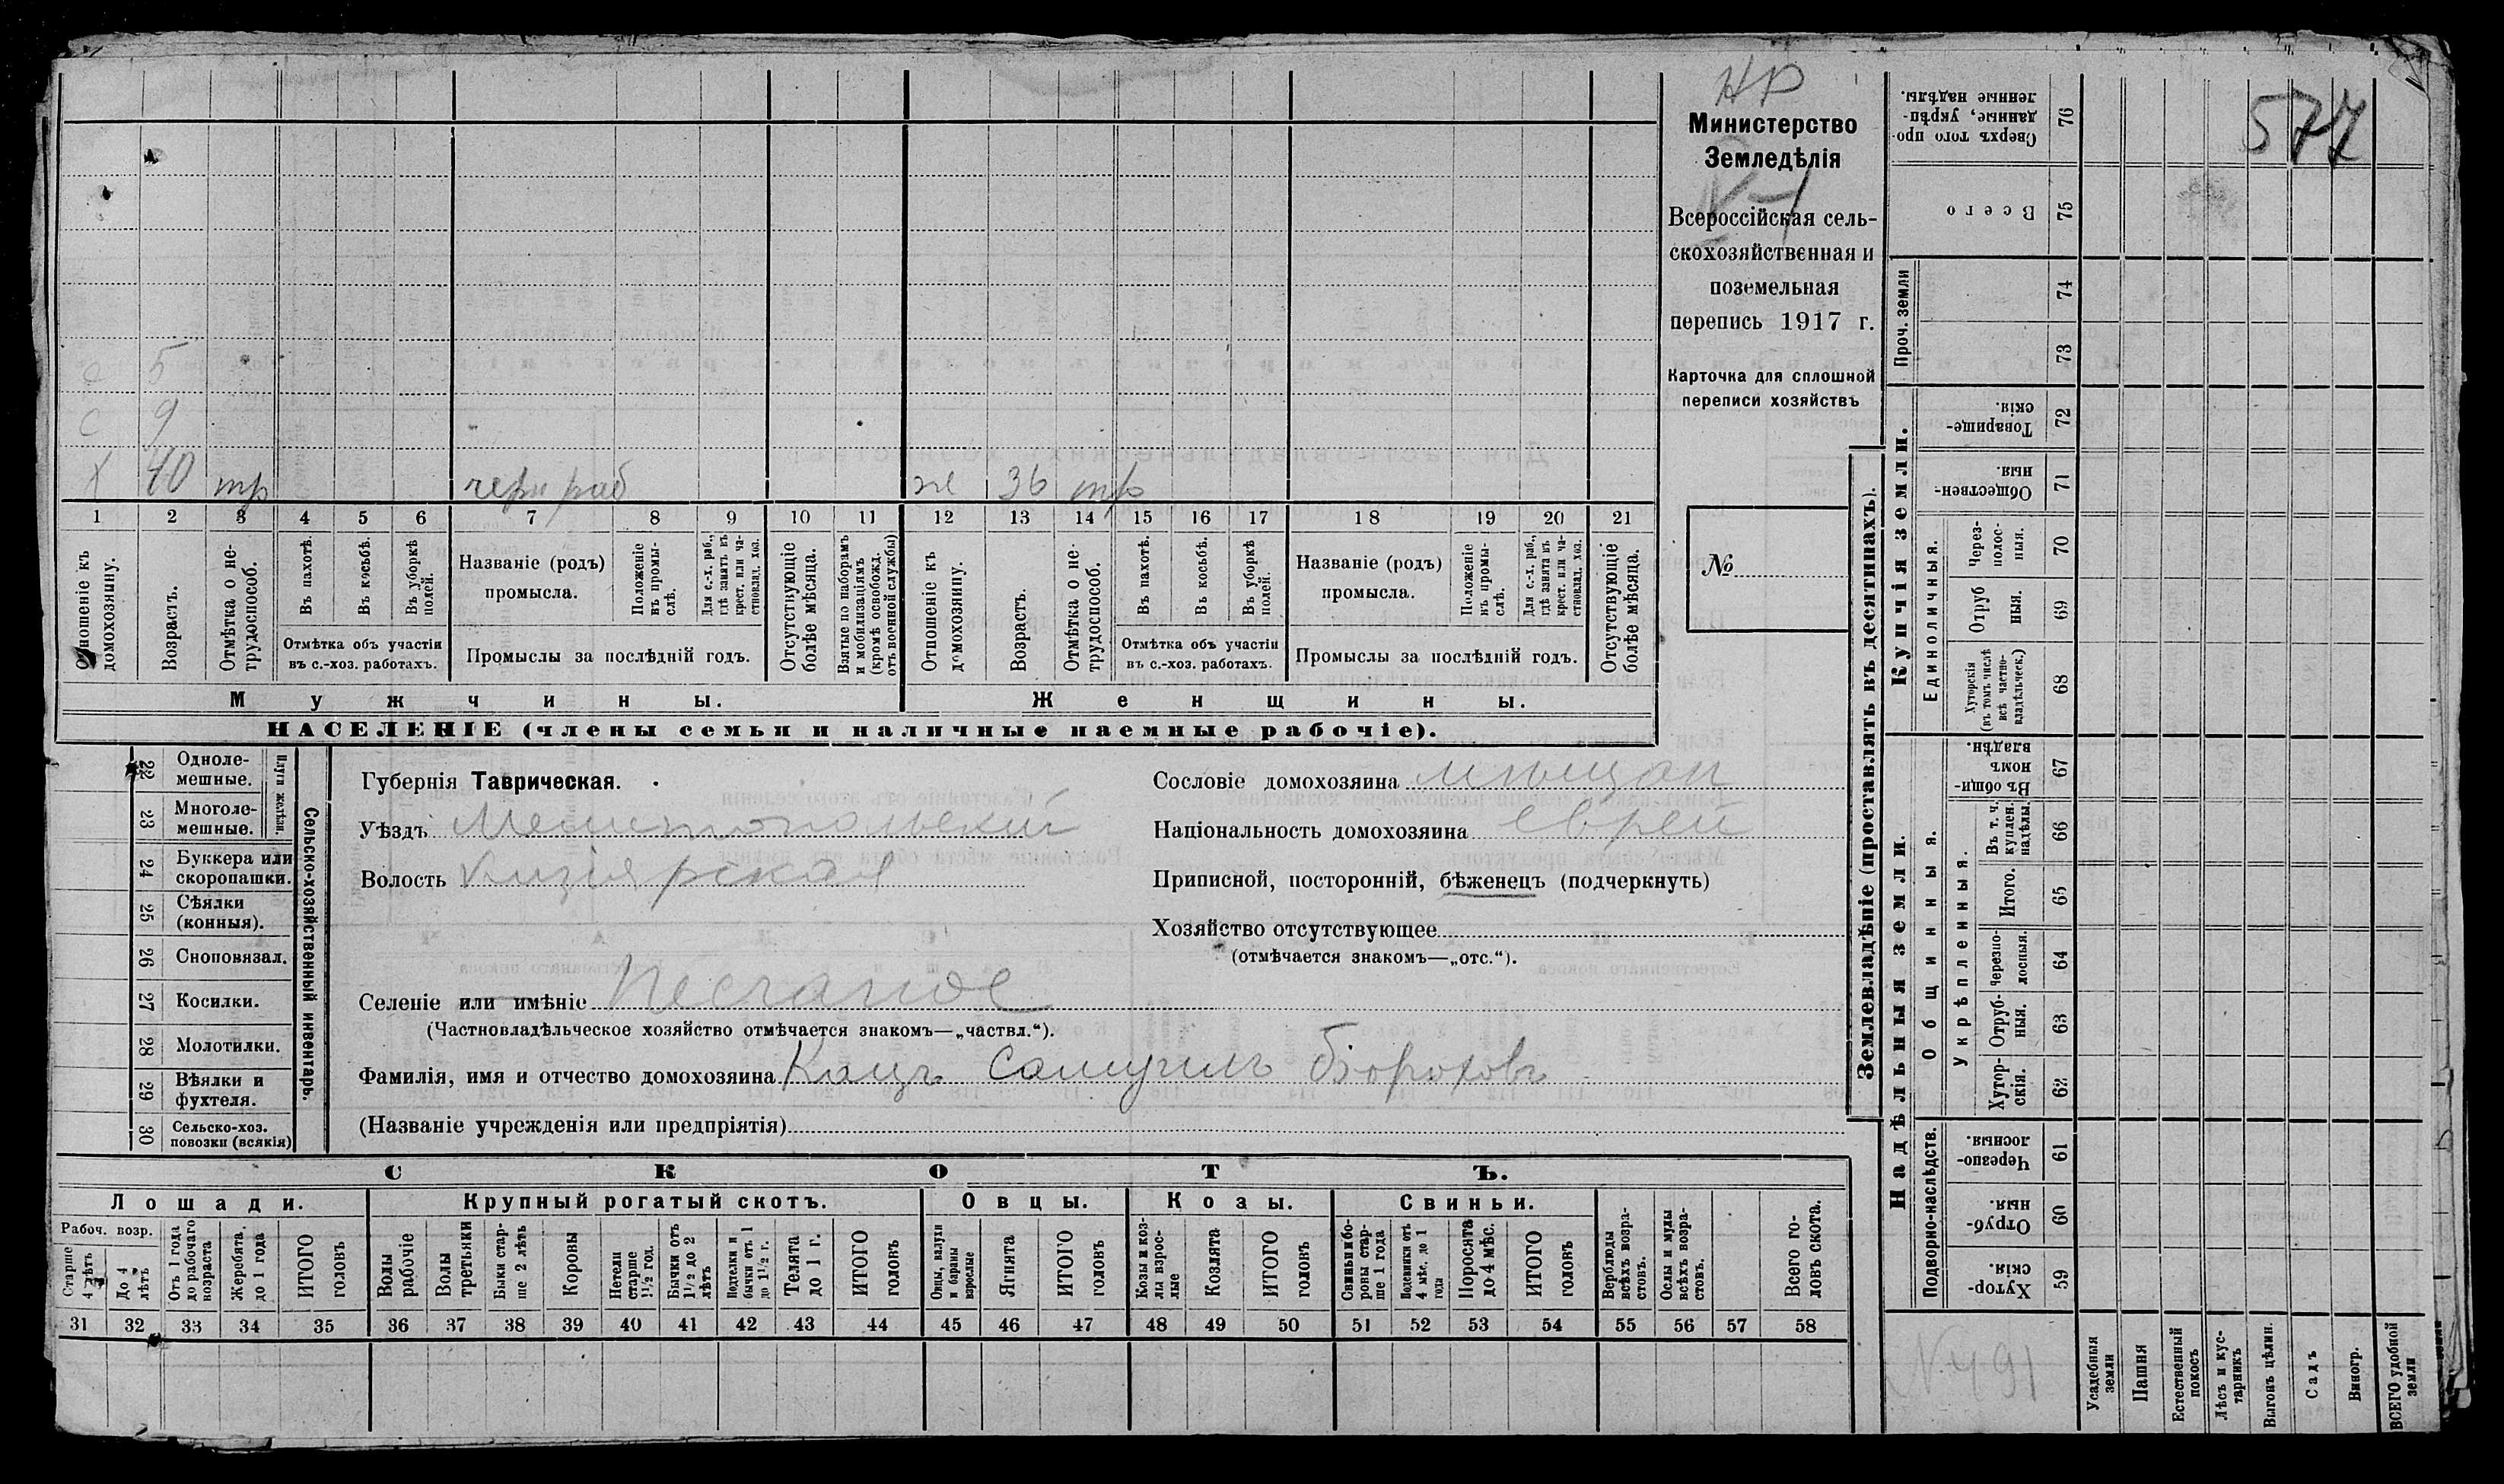 НР
Министерство
Земледѣлія
N-1
Всероссійская сель-
скохозяйственная и
поземельная
перепись 1917 г.
Карточка для сплошной
переписи хозяйствъ
№
577
с 5
с 9
х 40 тр черн раб же 36 тр
1 2 3 4 5 6 7 8 9 10 11 12 13 14 15 16 17 18 19 20 21
Отношеніе къ домохозяину.
Возрастъ.
Отмѣтка о не-трудоспособ.
Въ пахотѣ.
Въ косьбѣ.
Въ уборкѣ полей.
Отмѣтка объ участіи
въ с.-хоз. работахъ.
Названіе (родъ)
промысла.
Положеніе въ промы-слѣ.
Для с.-х. раб., гдѣ занятъ въ крест. или ча-стновлад. хоз.
Промыслы за послѣдній годъ.
Отсутствующіе болѣе мѣсяца.
Взятые по наборамъ и мобилизаціямъ (кромѣ освобожд. отъ военной службы)
Отношеніе къ домохозяину.
Возрастъ.
Отмѣтка о не-трудоспособ.
Въ пахотѣ.
Въ косьбѣ.
Въ уборкѣ полей.
Отмѣтка объ участіи
въ с.-хоз. работахъ.
Названіе (родъ)
промысла.
Положеніе въ промы-слѣ.
Для с.-х. раб., гдѣ занята въ крест. или ча-стновлад. хоз.
Промыслы за послѣдній годъ.
Отсутствующіе болѣе мѣсяца.
Мужчины.
Женщины.
НАСЕЛЕНІЕ (члены семьи и наличные наемные рабочіе).
22 Одноле-мешные.
23 Многоле-мешные.
Плуги желѣзн.
24 Буккера или скоропашки.
25 Сѣялки (конныя).
26 Сноповязал.
27 Косилки.
28 Молотилки.
29 Вѣялки и фухтеля.
30 Сельско-хоз. повозки (всякія)
Сельско-хозяйственный инвентарь.
Губернія Таврическая.
Уѣздъ Мелитопольскій
Волость Кизіярская
Селеніе или имѣніе Песчаное
(Частновладѣльческое хозяйство отмѣчается знакомъ—„частвл.“).
Фамилія, имя и отчество домохозяина Кацъ Самуилъ Бороховъ
(Названіе учрежденія или предпріятія)
Сословіе домохозяина мѣщан
Національность домохозяина еврей
Приписной, посторонній, бѣженецъ (подчеркнуть)
Хозяйство отсутствующее
(отмѣчается знакомъ—„отс.“).
СКОТЪ.
Лошади.
Крупный рогатый скотъ.
Овцы.
Козы.
Свиньи.
Рабоч. возр.
Старше 4 лѣтъ
До 4 лѣтъ
Отъ 1 года до рабочаго возраста
Жеребята до 1 года
ИТОГО головъ
Волы рабочіе
Волы третьяки
Быки стар-ше 2 лѣтъ
Коровы
Нетели старше 1½ год.
Бычки отъ 1½ до 2 лѣтъ
Подтелки и бычки отъ 1 до 1½ г.
Телята до 1 г.
ИТОГО головъ
Овцы, валухи и бараны взрослые
Ягнята
ИТОГО головъ
Козы и коз-лы взрос-лые
Козлята
ИТОГО головъ
Свиньи и бо-ровы стар-ше 1 года
Подсвинки отъ 4 мѣс. до 1 года
Поросята до 4 мѣс.
ИТОГО головъ
Верблюды всѣхъ возра-стовъ.
Ослы и мулы всѣхъ возра-стовъ.
Всего го-ловъ скота.
31 32 33 34 35 36 37 38 39 40 41 42 43 44 45 46 47 48 49 50 51 52 53 54 55 56 57 58
Землевладѣніе (проставлять въ десятинахъ).
Надѣльныя земли.
Купчія земли.
Проч. земли
Подворно-наслѣдств.
Общинныя.
Укрѣпленныя.
Единоличныя.
Сверхъ того про-данные, укрѣп-ленные надѣлы. 76
Всего 75
74
73
Товарище-скія. 72
Обществен-ныя. 71
Через-полос-ныя. 70
Отруб-ныя. 69
Хуторскія (въ томъ числѣ всѣ частно-владѣльческ.) 68
Въ общин-номъ владѣн. 67
Въ т. ч. куплен. надѣлы. 66
Итого. 65
Черезпо-лосныя. 64
Отруб-ныя. 63
Хутор-скія. 62
Черезпо-лосныя. 61
Отруб-ныя. 60
Хутор-скія. 59
N 491
Усадебныя земли
Пашня
Естественный покосъ
Лѣсъ и кус-тарникъ
Выгонъ цѣлин.
Садъ
Виногр.
ВСЕГО удобной земли